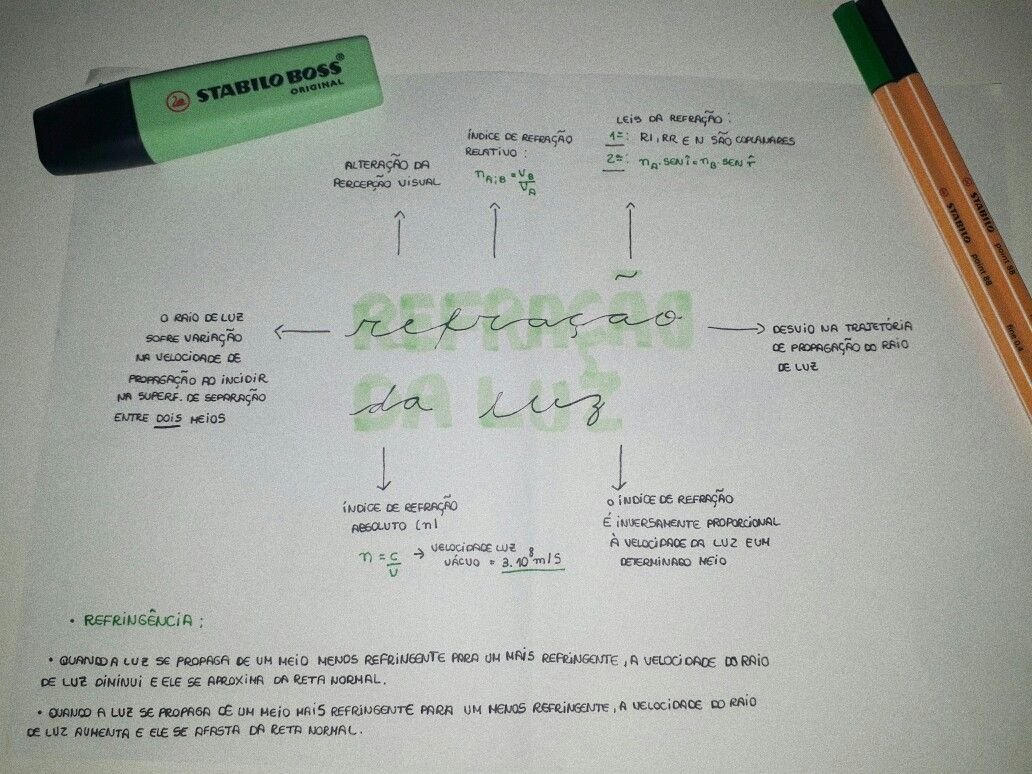 STABILO BOSS
ORIGINAL
STABILO point 88 fine 0,4
STABILO point 88
ALTERAÇÃO DA
PERCEPÇÃO VISUAL
ÍNDICE DE REFRAÇÃO
RELATIVO :
nA;B = VB/VA
LEIS DA REFRAÇÃO :
1ª: RI, RR E N SÃO COPLANARES
2ª: nA. SEN î = nB. SEN r̂
O RAIO DE LUZ
SOFRE VARIAÇÃO
NA VELOCIDADE DE
PROPAGAÇÃO AO INCIDIR
NA SUPERF. DE SEPARAÇÃO
ENTRE DOIS MEIOS
REFRAÇÃO
refração
DA LUZ
da luz
DESVIO NA TRAJETÓRIA
DE PROPAGAÇÃO DO RAIO
DE LUZ
ÍNDICE DE REFRAÇÃO
ABSOLUTO (n)
n = c/v → VELOCIDADE LUZ
VÁCUO = 3.10⁸ m/s
O ÍNDICE DE REFRAÇÃO
É INVERSAMENTE PROPORCIONAL
À VELOCIDADE DA LUZ EUM
DETERMINADO MEIO
• REFRINGÊNCIA :
• QUANDO A LUZ SE PROPAGA DE UM MEIO MENOS REFRINGENTE PARA UM MAIS REFRINGENTE, A VELOCIDADE DO RAIO
DE LUZ DIMINUI E ELE SE APROXIMA DA RETA NORMAL.
• QUANDO A LUZ SE PROPAGA DE UM MEIO MAIS REFRINGENTE PARA UM MENOS REFRINGENTE, A VELOCIDADE DO RAIO
DE LUZ AUMENTA E ELE SE AFASTA DA RETA NORMAL.